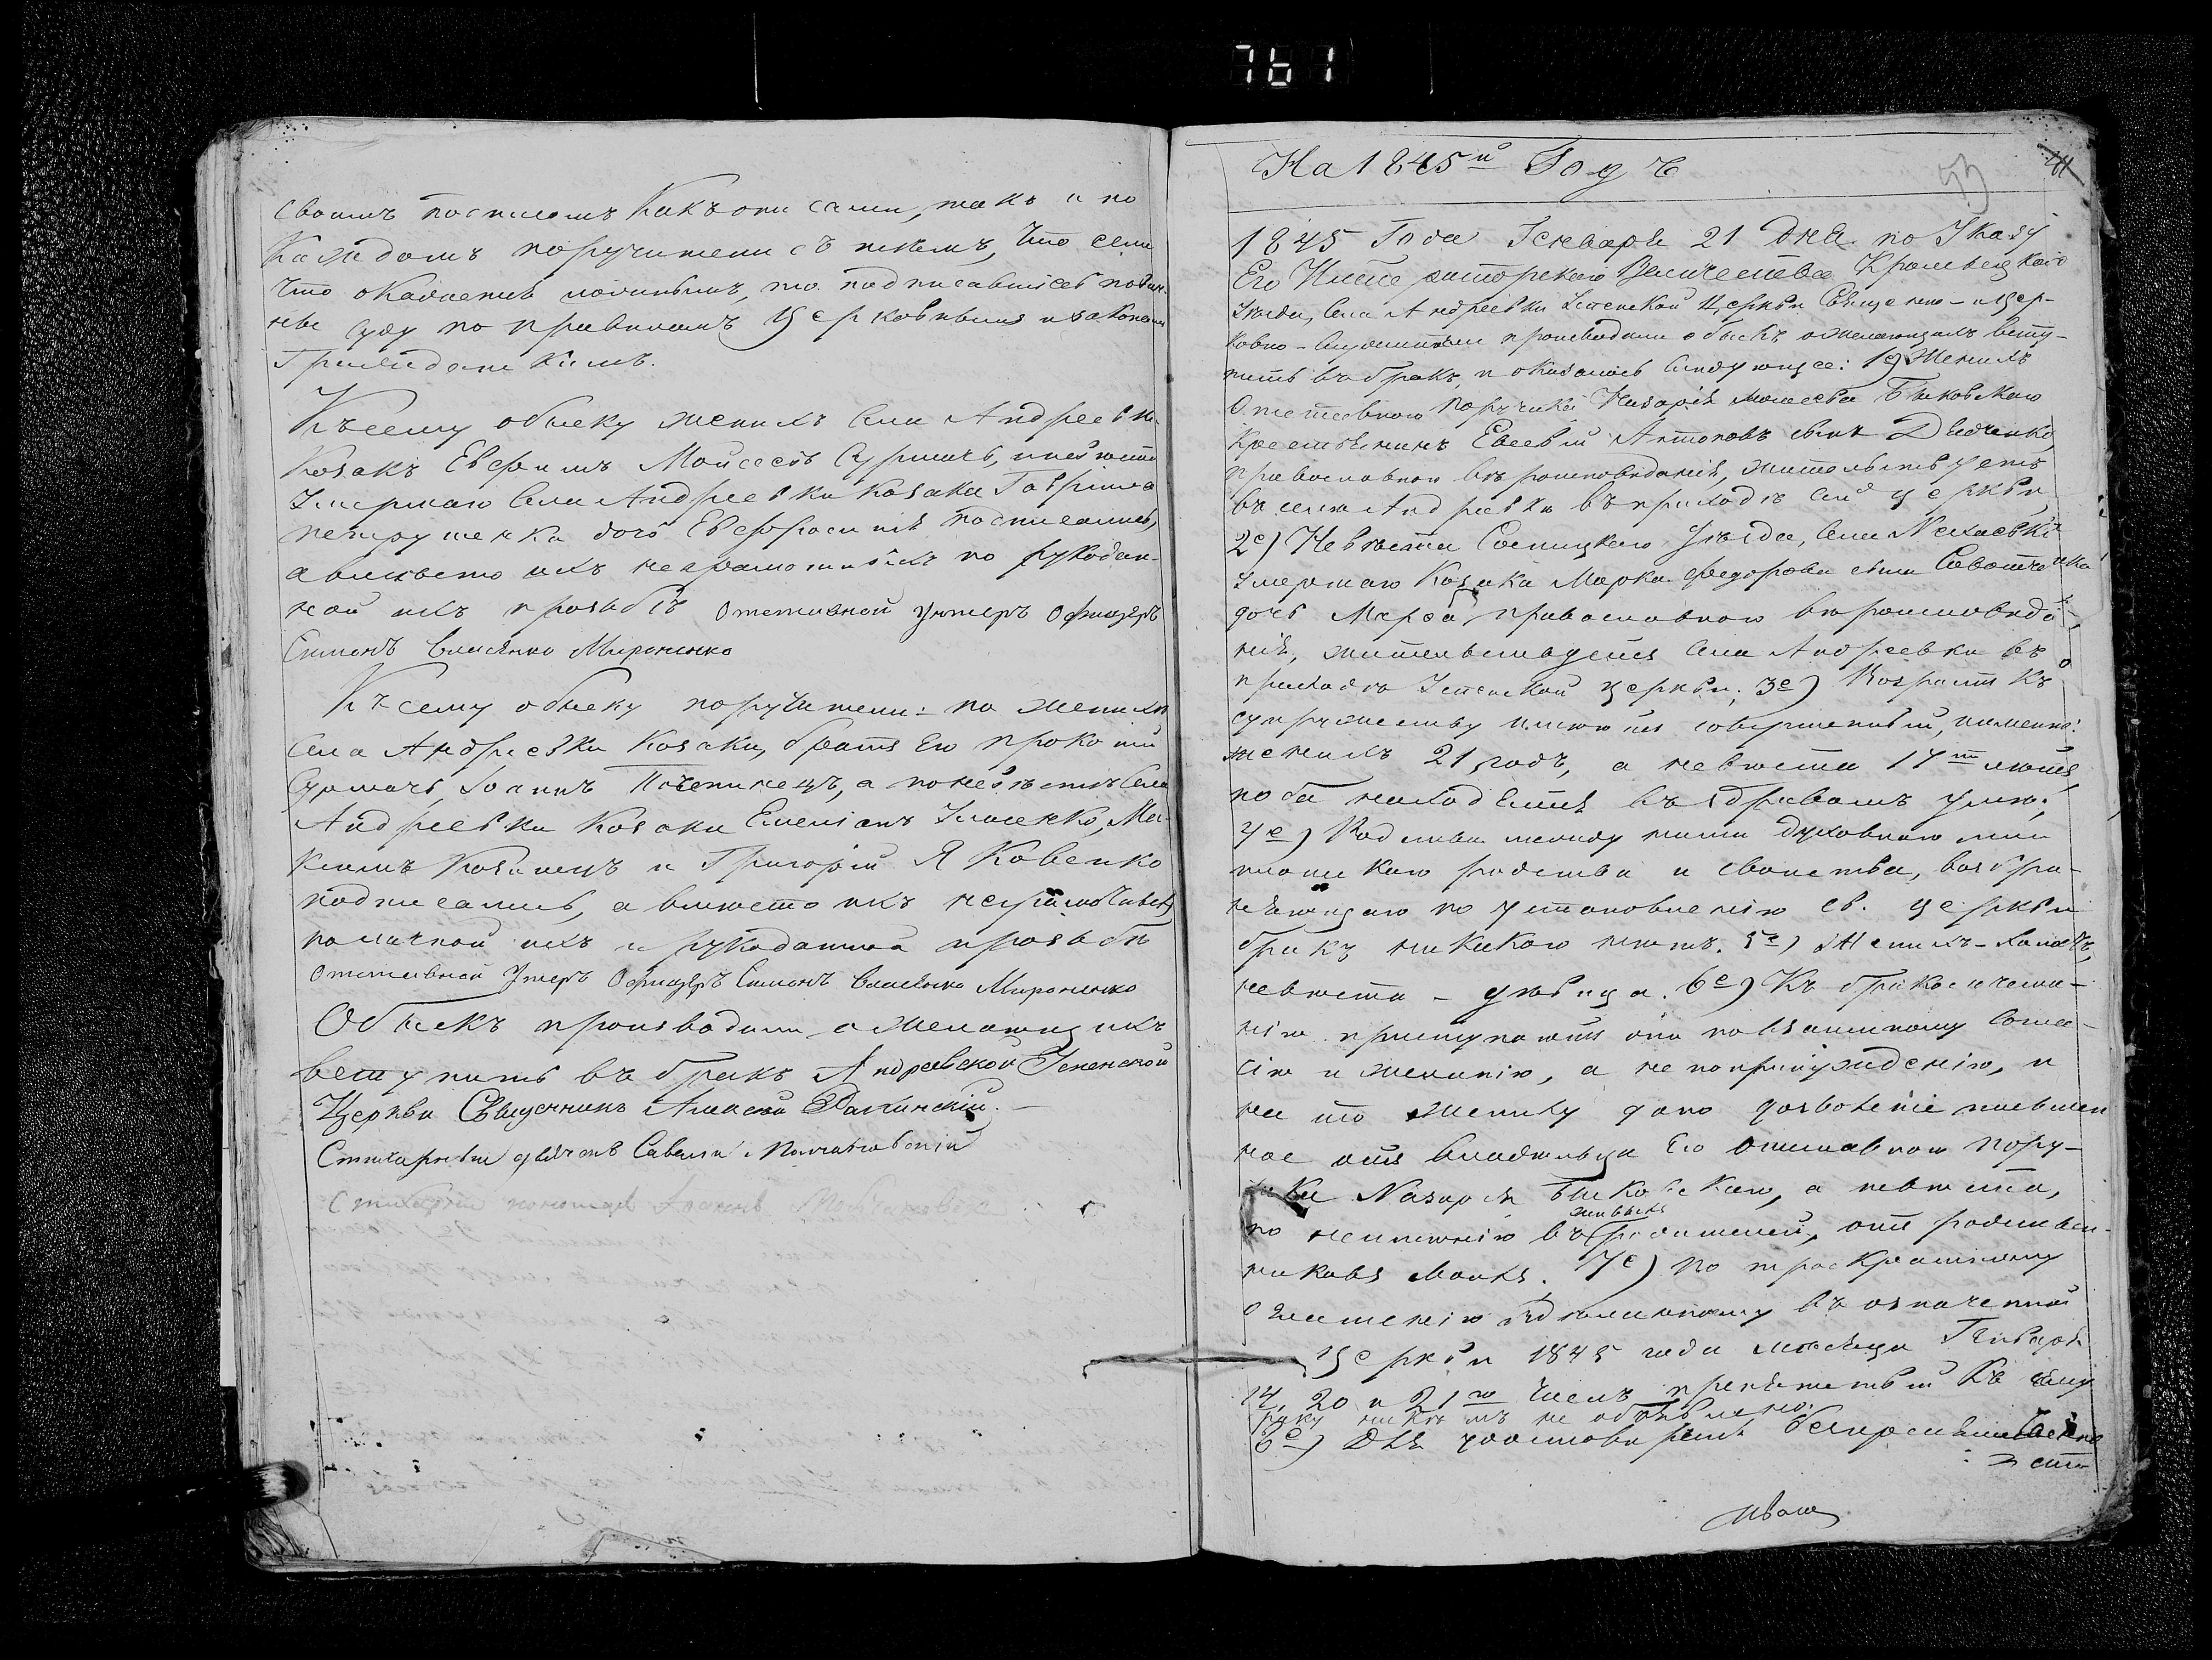 761
своимъ посписомъ какъ они сами, такъ и по
каждомъ поручители съ нихъ, что если
что окажется ложнымъ, то подписавшіеся повин-
ны суду по правиламъ церковнымъ и законамъ
Гражданскимъ.
Къ сему обыску женихъ села Андреевки
козакъ Евфимъ Мойсеевъ Сурмачъ, невѣста
умершаго села Андреевки козака Гавріила
петрушенка дочь Евфросинія подписались,
а вмѣсто ихъ неграмотныхъ по рукодан-
ной ихъ прозьбѣ Отставной Унтеръ Офицеръ
Симонъ Мироненко
Къ сему обыску поручители: по женихѣ
села Андреевки козаки, братъ Его прокопій
Сурмачъ, Іоаннъ а по невѣстѣ села
Андреевки козаки Емеліанъ Ма-
ксимъ и Григорій Яковенко
подписались, а вмѣсто ихъ неграмотныхъ
по личной ихъ и рукоданной прозьбѣ
Отставной Унтеръ Офицеръ Симонъ Мироненко
Обыскъ производили о желающихъ
вступить въ бракъ Андреевской Успенской
Церкви Священникъ Алексѣй
Стихарный дьячекъ Савелій
Стихарный пономарь Іоаннъ
На 1845й Годъ
53
41
1845 Года Генваря 21 Дня по Указу
Его Императорскаго Величества Кролевецкаго
Уѣзда, села Андреевки Успенской Церкви Священно-и цер-
ковно-служители производили обыскъ о желающихъ всту-
пить въ бракъ, и оказалось слѣдующее: 1е) Женихъ
Отставного Поручика Назарія Моисеева Быковскаго
Крестьянинъ Евсевій Антоновъ сынъ Дядченко,
православного вѣроисповѣданія, жительствуетъ
въ селѣ Андреевки въ приходѣ сей церкви
2е) Невѣста Сосницкаго Уѣзда, села Нехаевки
умершаго Козака Марка Федорова сына
дочь Марѳа, православного вѣроисповѣда-
нія, жительствуетъ села Андреевки въ
приходѣ Успенской церкви; 3е) Возрастъ къ
супружеству имѣютъ совершенный, именно:
женихъ 21 годъ, а невѣста 17ть лѣтъ,
и оба находятся въ здравомъ умѣ;
4е) Родства между ними духовного или
плотскаго родства и свойства, возбра-
няющаго по установленію св. церкви
бракъ никакого нѣтъ. 5е) Женихъ-холостъ,
невѣста - дѣвица. 6е) Къ бракосочета-
нію приступаютъ они по взаимному согла-
сію и желанію, а не по принужденію, и
на то жениху дано дозволеніе письмен
ное отъ владѣльца Его отставного Пору-
чика Назарія Быковскаго, а невѣста,
живыхъ
по неимѣнію въ родителей, отъ родствен-
никовъ своихъ. 7е) По троекратному
оглашенію здѣланному въ означенной
церкви 1845 года мѣсяца Генваря
14, 20 и 21го числъ препятствій къ сему
браку никѣмъ не объявлено.
8е) Для удостовѣренія безпрепятственно
сти
Иванъ